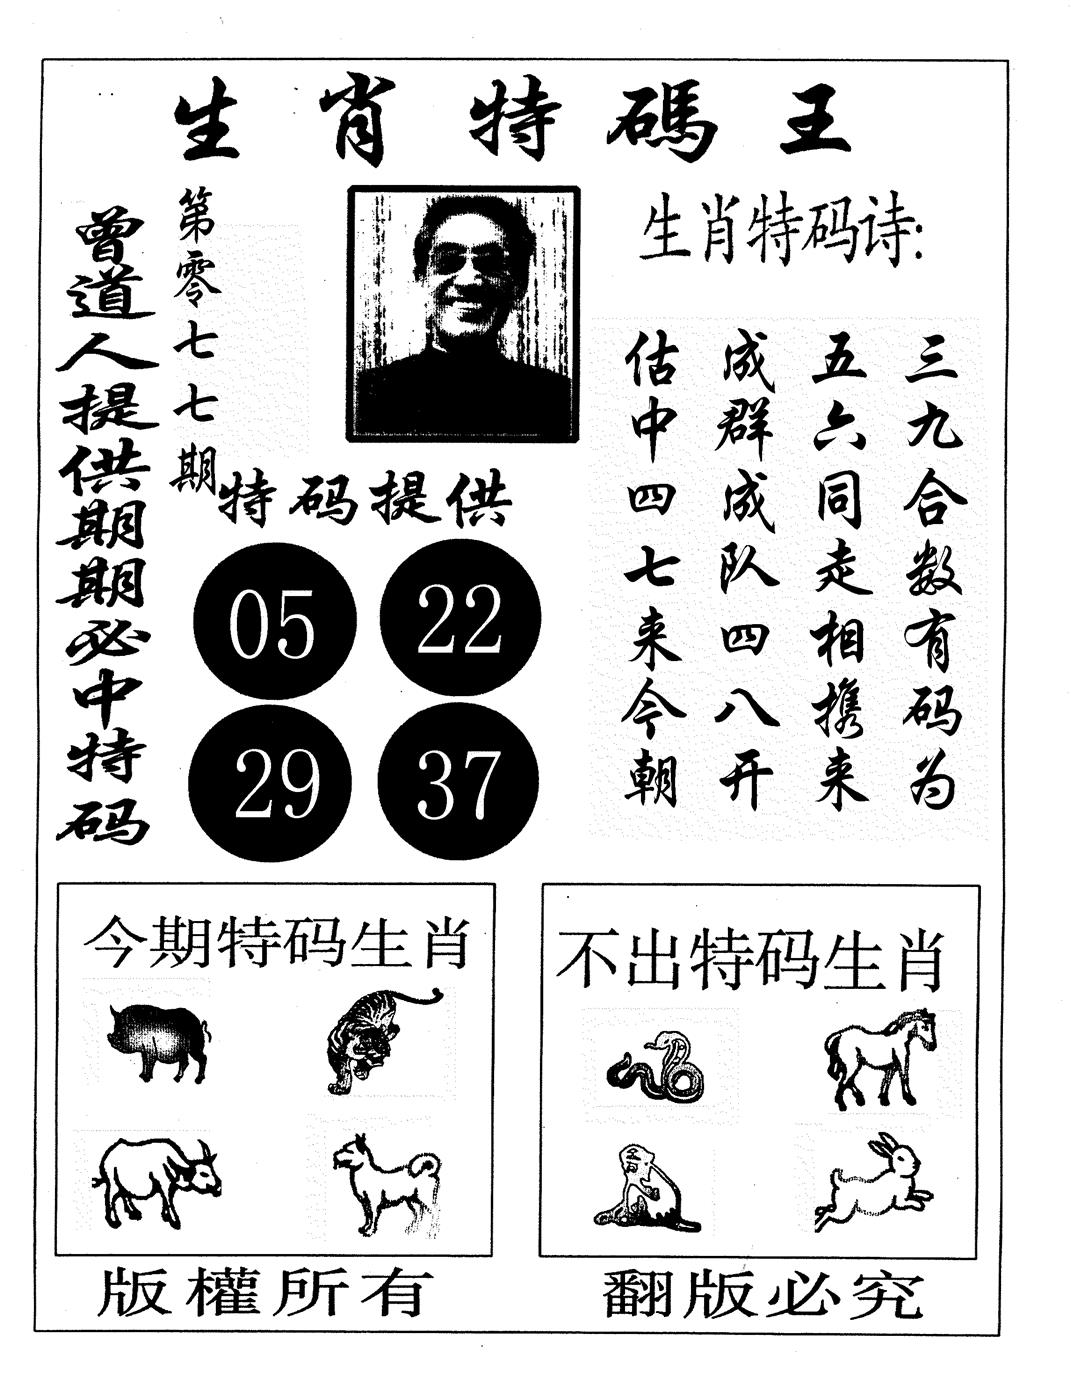 生肖特碼王
曾道人提供期期必中特码
第零七七期
生肖特码诗:
三九合数有码为
五六同走相携来
成群成队四八开
估中四七来今朝
特码提供
05 22
29 37
今期特码生肖
不出特码生肖
版權所有
翻版必究